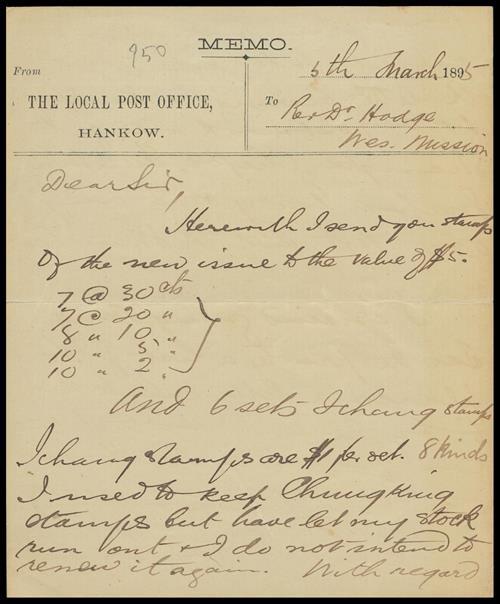 950
MEMO.
From
THE LOCAL POST OFFICE,
HANKOW.
5th March 1895
To
Revd Dr. Hodge
Wes. Mission
Dear Sir,
Herewith I send you stamps
of the new issue to the value of $5.
7 @ 30 cts
7 @ 20 "
8 " 10 "
10 " 5 "
10 " 2 "
And 6 sets Ichang stamps
Ichang stamps are $1 per set. 8 kinds
I used to keep Chungking
stamps but have let my stock
run out & I do not intend to
renew it again. With regard